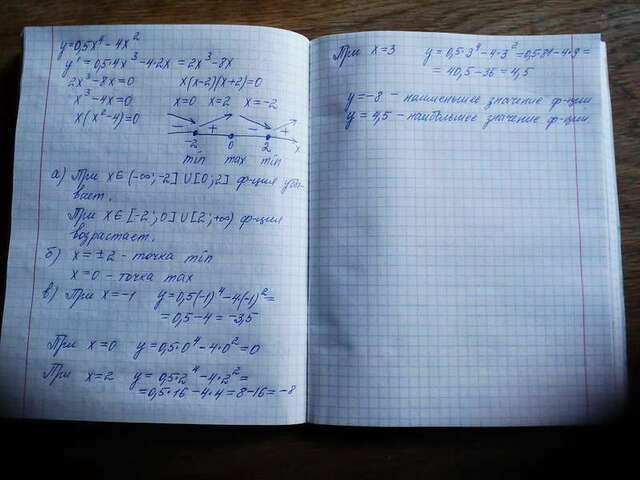 y=0,5x⁴-4x²
y'=0,5·4x³-4·2x=2x³-8x
2x³-8x=0 x(x-2)(x+2)=0
x³-4x=0 x=0 x=2 x=-2
x(x²-4)=0
- + - +
-2 0 2 x
min max min
а) При x∈(-∞;-2]∪[0;2] ф-ция убы-
вает.
При x∈[-2;0]∪[2;+∞) ф-ция
возрастает.
б) x=±2 - точка min
x=0 - точка max
в) При x=-1 y=0,5(-1)⁴-4(-1)²=
=0,5-4=-3,5
При x=0 y=0,5·0⁴-4·0²=0
При x=2 y=0,5·2⁴-4·2²=
=0,5·16-4·4=8-16=-8
При x=3 y=0,5·3⁴-4·3²=0,5·81-4·9=
=40,5-36=4,5
y=-8 - наименьшее значение ф-ции
y=4,5 - наибольшее значение ф-ции